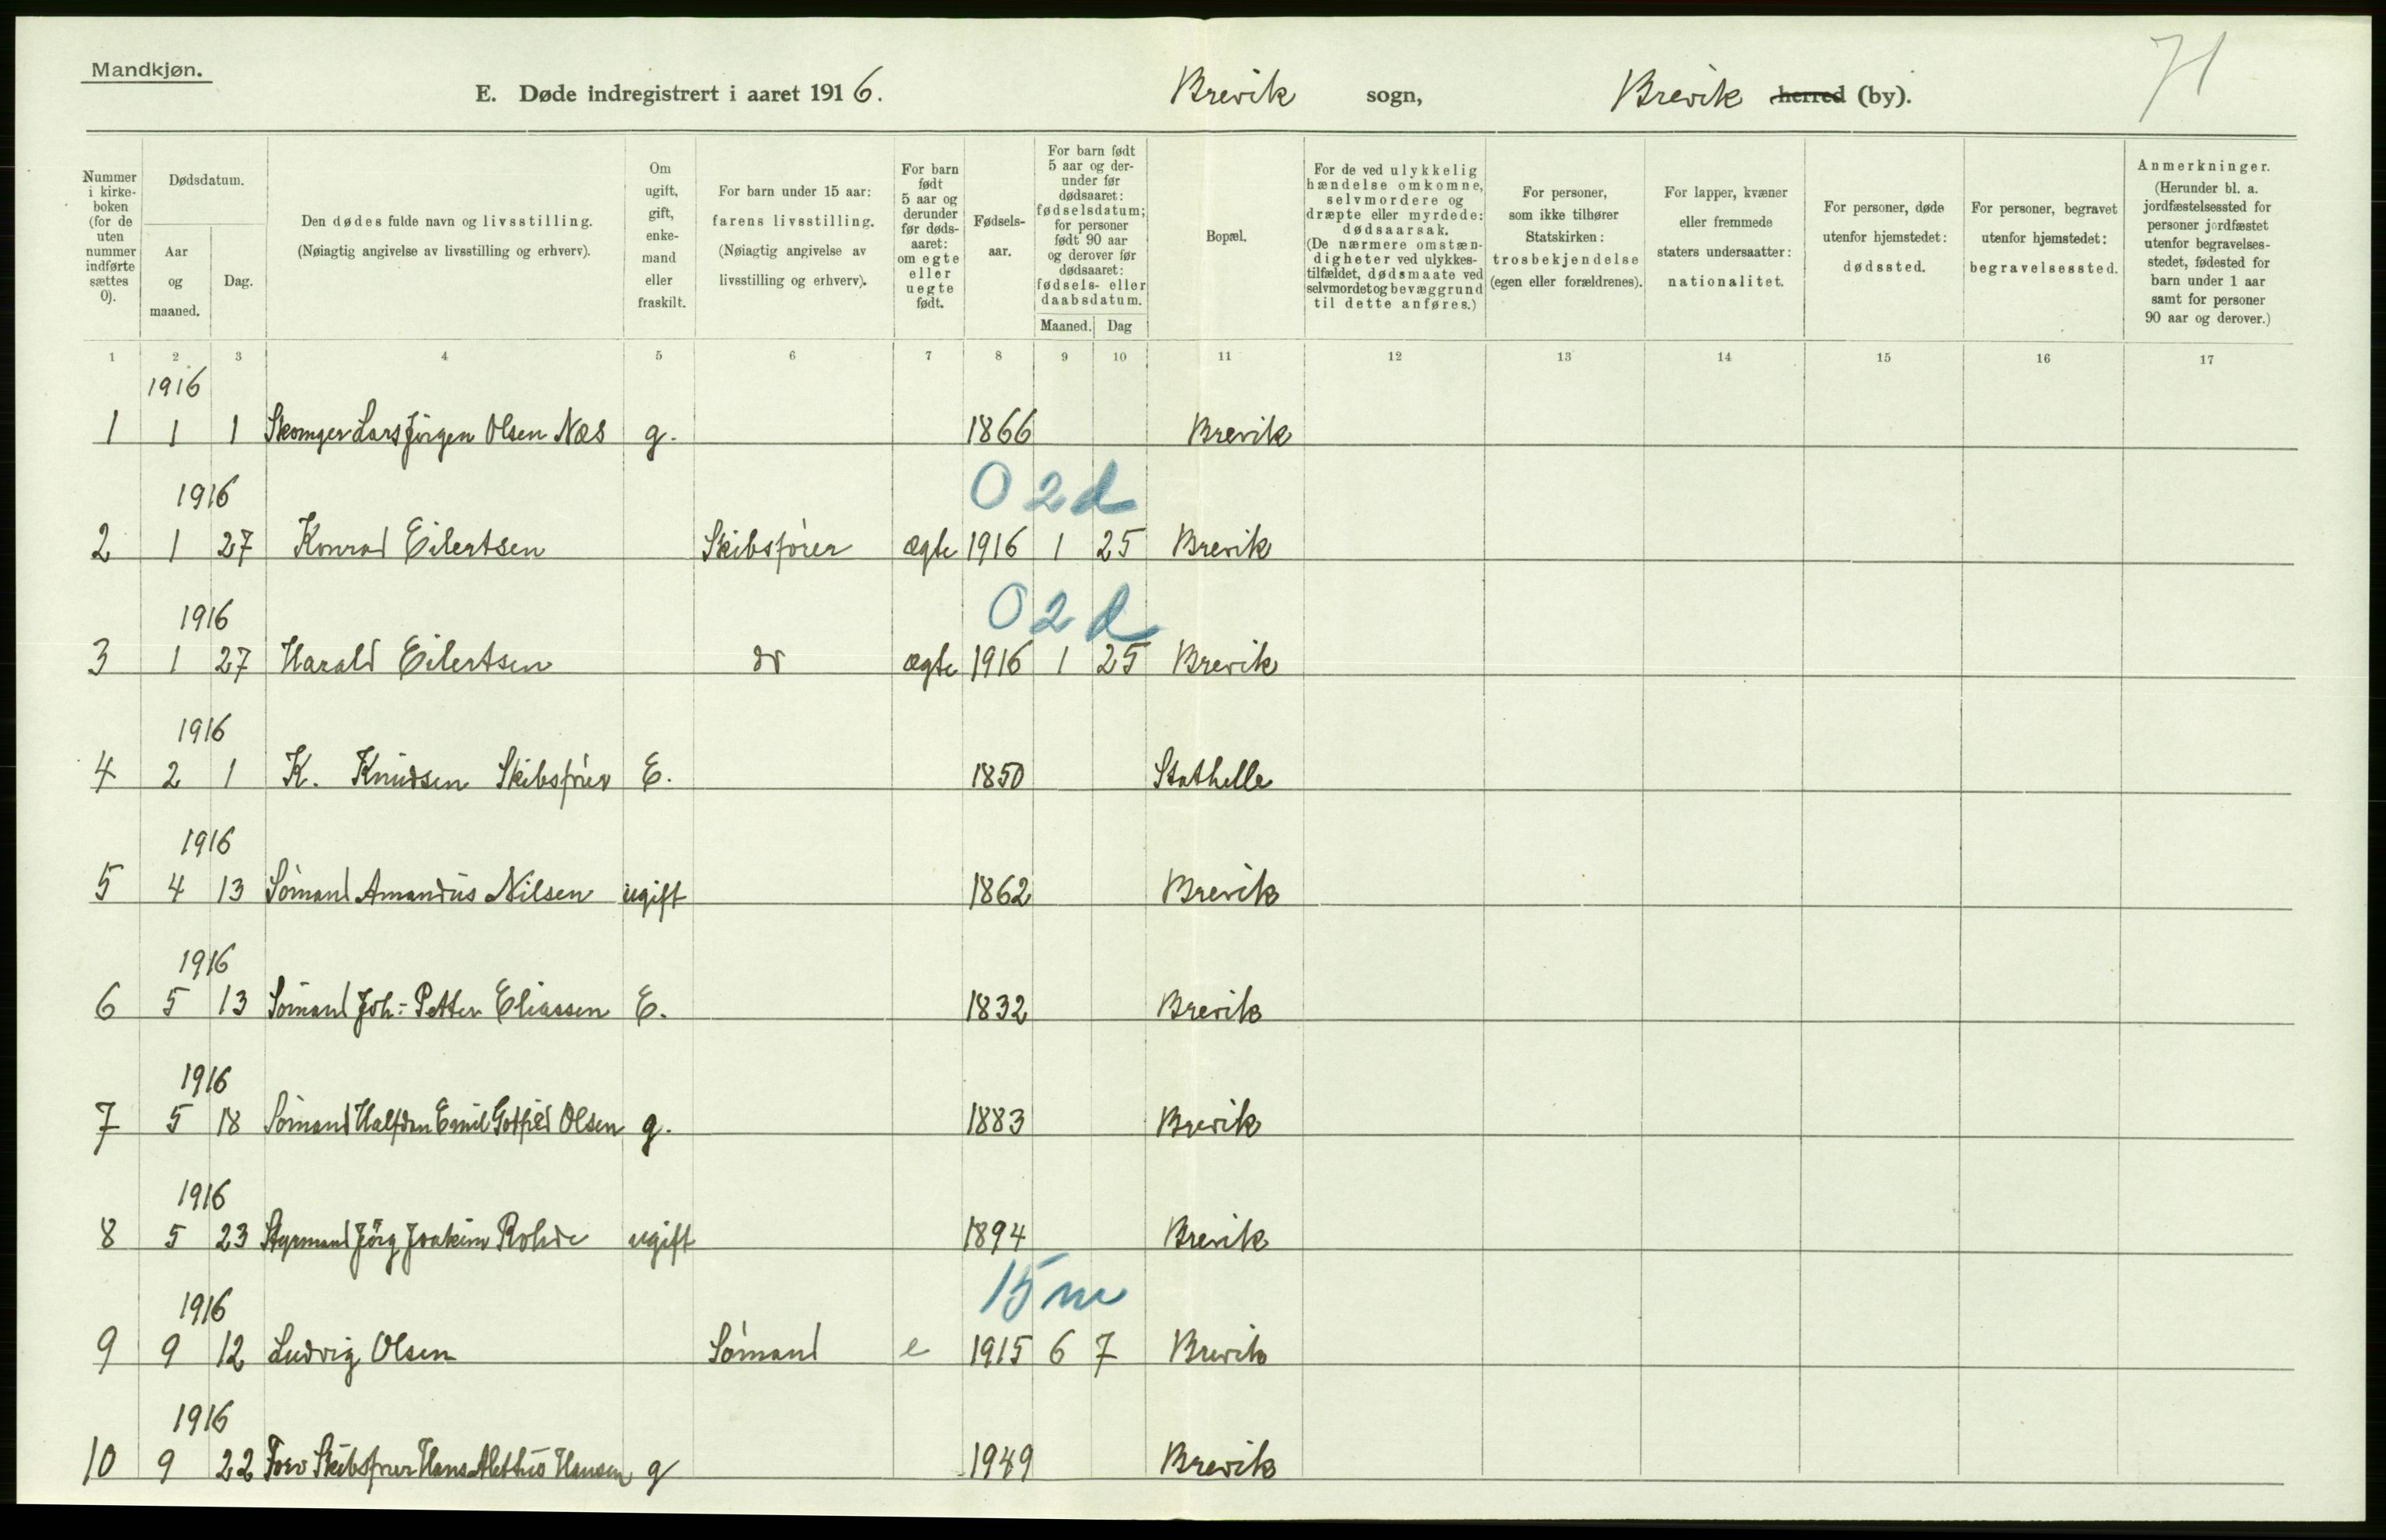 Mandkjøn.
E. Døde indregistrert i aaret 1916. Brevik sogn, Brevik herred (by). 71
Nummer i kirke-boken (for de uten nummer indførte sættes 0).
Dødsdatum.
Aar og maaned.
Dag.
Den dødes fulde navn og livsstilling.
(Nøiagtig angivelse av livsstilling og erhverv).
Om ugift, gift, enke-mand eller fraskilt.
For barn under 15 aar: farens livsstilling.
(Nøiagtig angivelse av livsstilling og erhverv).
For barn født 5 aar og derunder før døds-aaret: om egte eller uegte født.
Fødsels-aar.
For barn født 5 aar og der-under før dødsaaret: fødselsdatum; for personer født 90 aar og derover før dødsaaret: fødsels- eller daabsdatum.
Maaned. Dag
Bopæl.
For de ved ulykkelig hændelse omkomne, selvmordere og dræpte eller myrdede: dødsaarsak.
(De nærmere omstæn-digheter ved ulykkes-tilfældet, dødsmaate ved selvmordet og bevæggrund til dette anføres.)
For personer, som ikke tilhører Statskirken: trosbekjendelse (egen eller forældrenes).
For lapper, kvæner eller fremmede staters undersaatter: nationalitet.
For personer, døde utenfor hjemstedet: dødssted.
For personer, begravet utenfor hjemstedet: begravelsessted.
Anmerkninger.
(Herunder bl. a. jordfæstelsessted for personer jordfæstet utenfor begravelses-stedet, fødested for barn under 1 aar samt for personer 90 aar og derover.)
1 2 3 4 5 6 7 8 9 10 11 12 13 14 15 16 17
1916
1 1 1 Lars Jörgen Olsen Næs g. 1866 Brevik
1916 0 2 d
2 1 27 Konrad Eilertsen Skibsfører ægte 1916 1 25 Brevik
1916 0 2 d
3 1 27 Harald Eilertsen do ægte 1916 1 25 Brevik
1916
4 2 1 K. Knudsen Skibsfører E. 1850 Stathelle
1916
5 4 13 Sömand Amandus Nilsen ugift 1862 Brevik
1916
6 5 13 Sömand Joh: Petter Eliassen E. 1832 Brevik
1916
7 5 18 Sömand Halfdan Emil Gotfred Olsen g. 1883 Brevik
1916
8 5 23 Styrmand Jörg Joakim Rohde ugift 1894 Brevik
1916 15 m
9 9 12 Ludvig Olsen Sömand e 1915 6 7 Brevik
1916
10 9 22 Forv Skibsfører Hans Hansen g 1949 Brevik